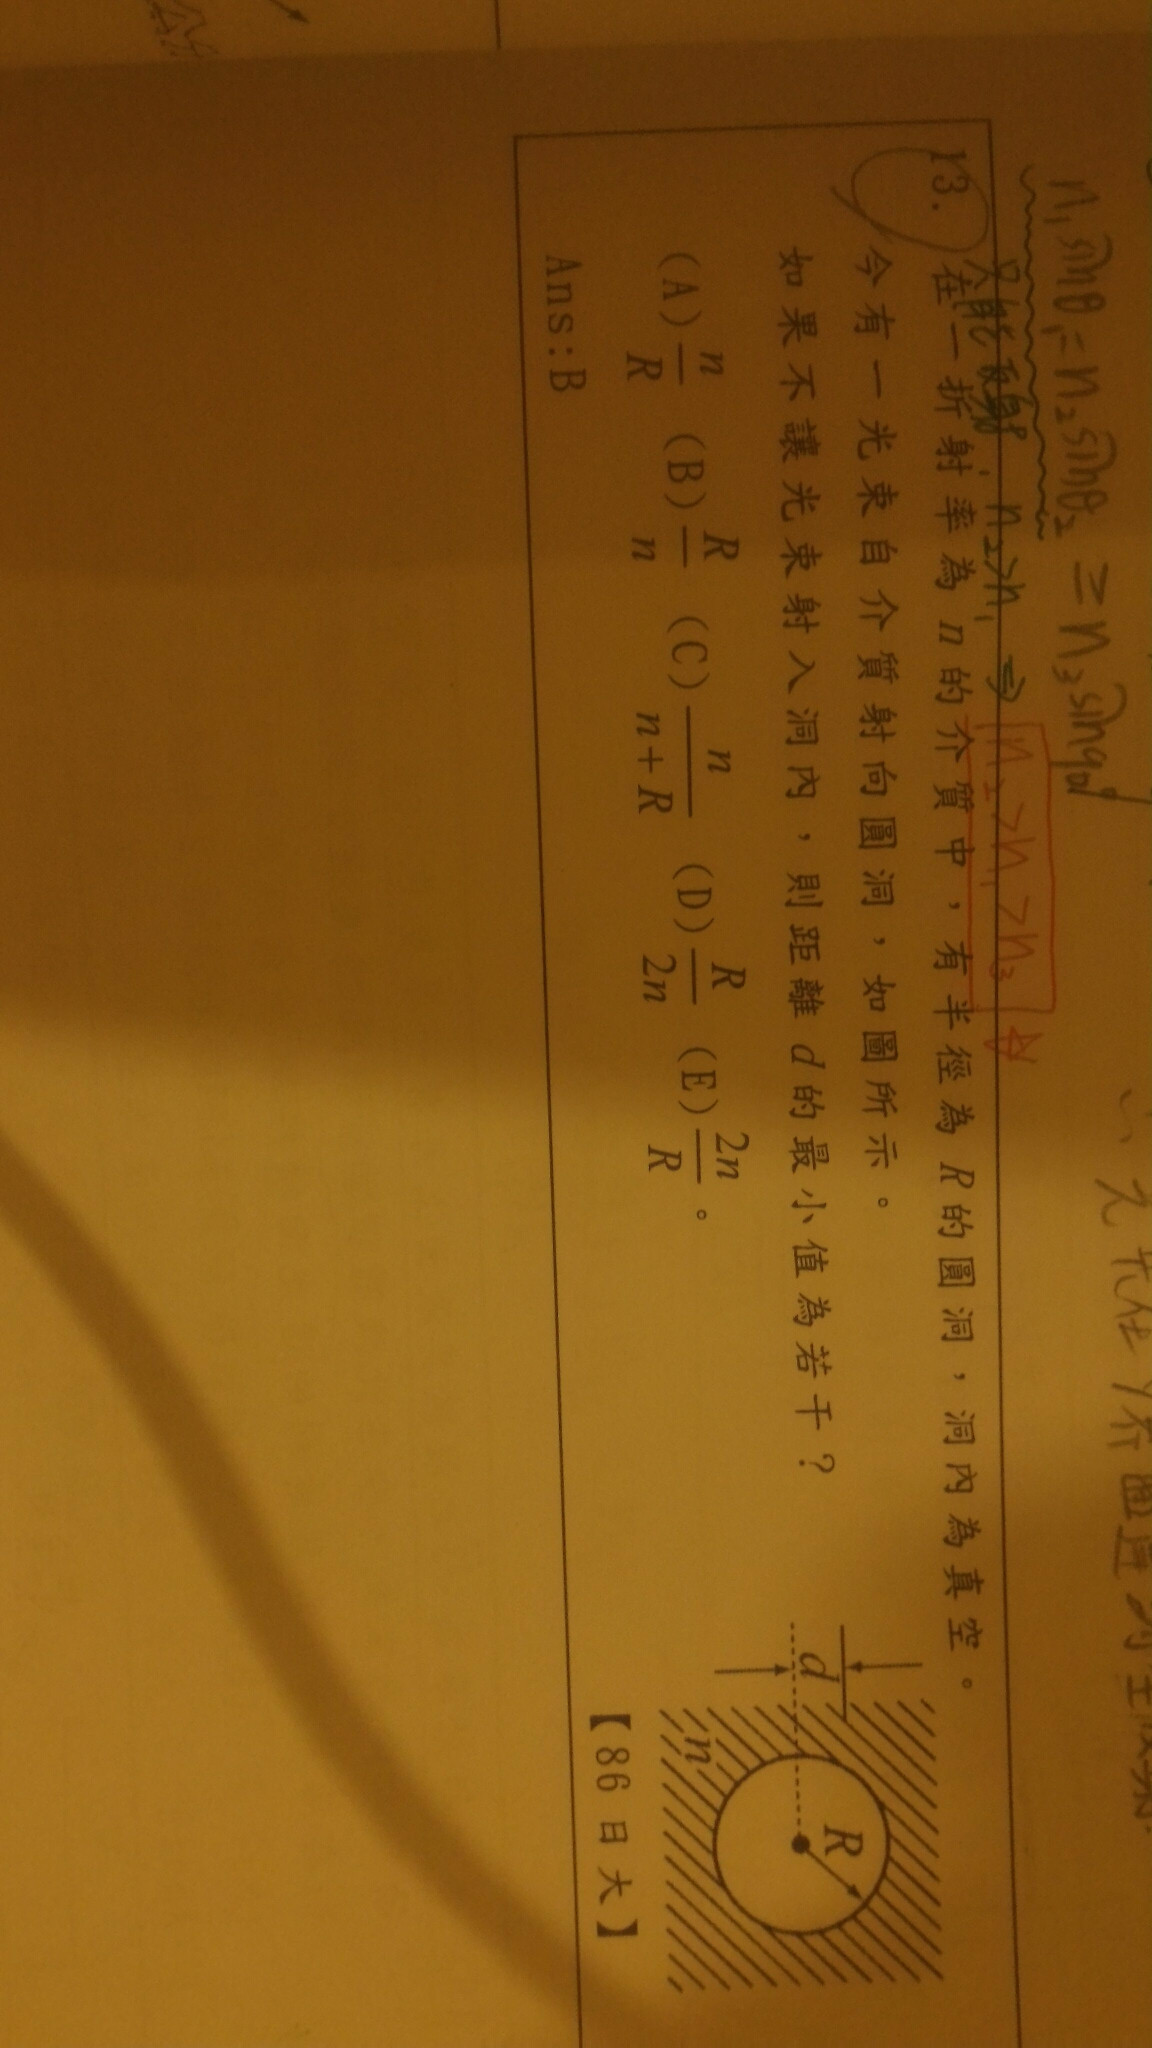 n₁sinθ₁=n₂sinθ₂=n₃sin90°
只能反射, n₂>n₁ ⇒ n₂>n₁>n₃
13. 在一折射率為 n 的介質中，有半徑為 R 的圓洞，洞內為真空。
今有一光束自介質射向圓洞，如圖所示。
如果不讓光束射入洞內，則距離 d 的最小值為若干？
(A) n/R (B) R/n (C) n/(n+R) (D) R/2n (E) 2n/R 。
Ans:B
【86日大】
d
R
n